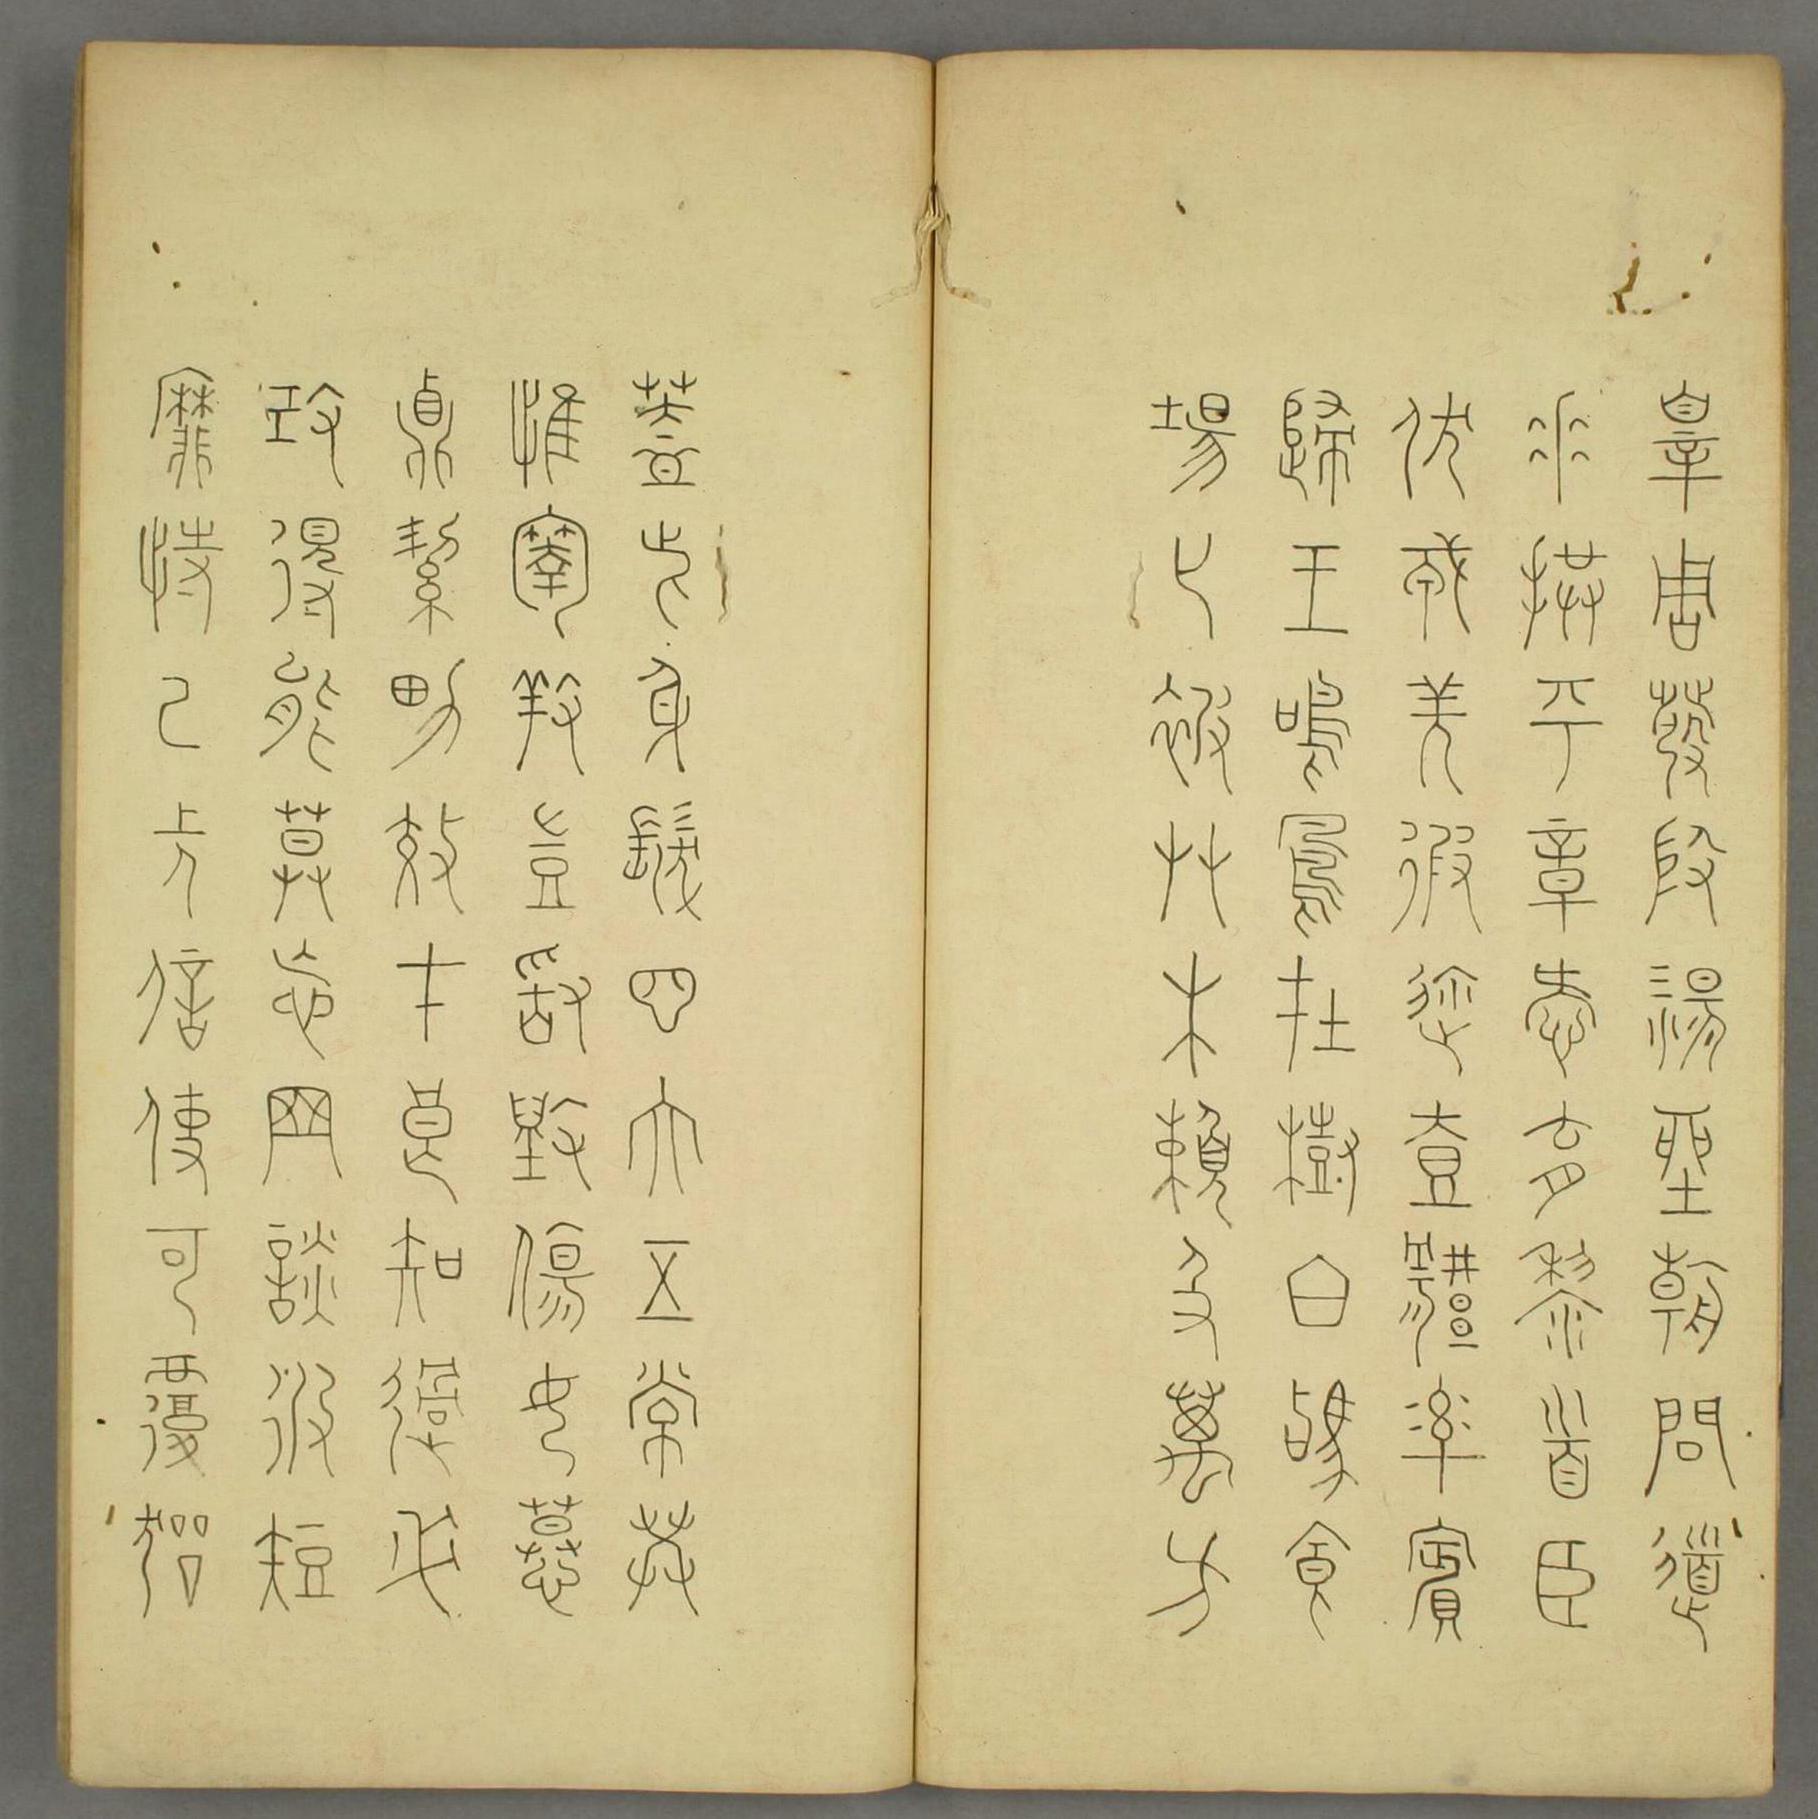 辠周發殷湯坐朝問道
垂拱平章愛育黎首臣
伏戎羌遐邇壹體率賓
歸王鳴鳳在樹白駒食
場化被草木賴及萬方
蓋此身髮四大五常恭
惟鞠養豈敢毀傷女慕
貞絜男效才良知過必
改得能莫忘罔談彼短
靡恃己長信使可覆器